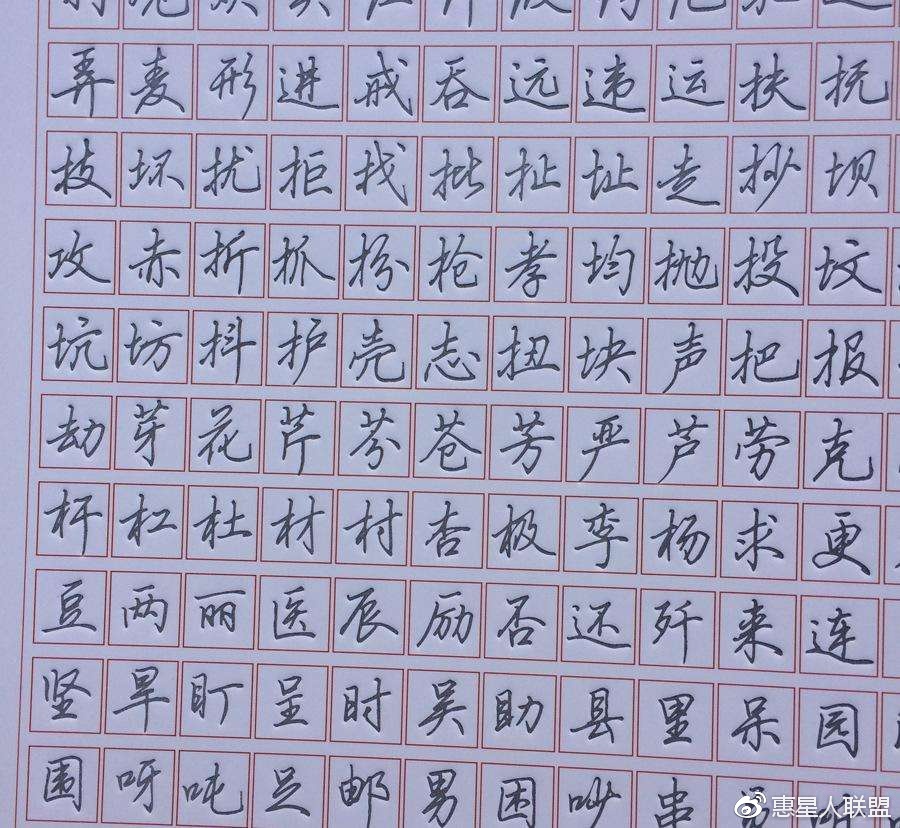 弄麦形进戒吞远违运扶抚
技坏扰拒找批扯址走抄坝
攻赤折抓扮抢孝均抛投坟
坑坊抖护壳志扭块声把报
劫芽花芹芬苍芳严芦劳克
杆杠杜材村杏极李杨求更
豆两丽医辰励否还歼来连
坚旱盯呈时吴助县里呆园
围呀吨足邮男困吵串
惠星人联盟